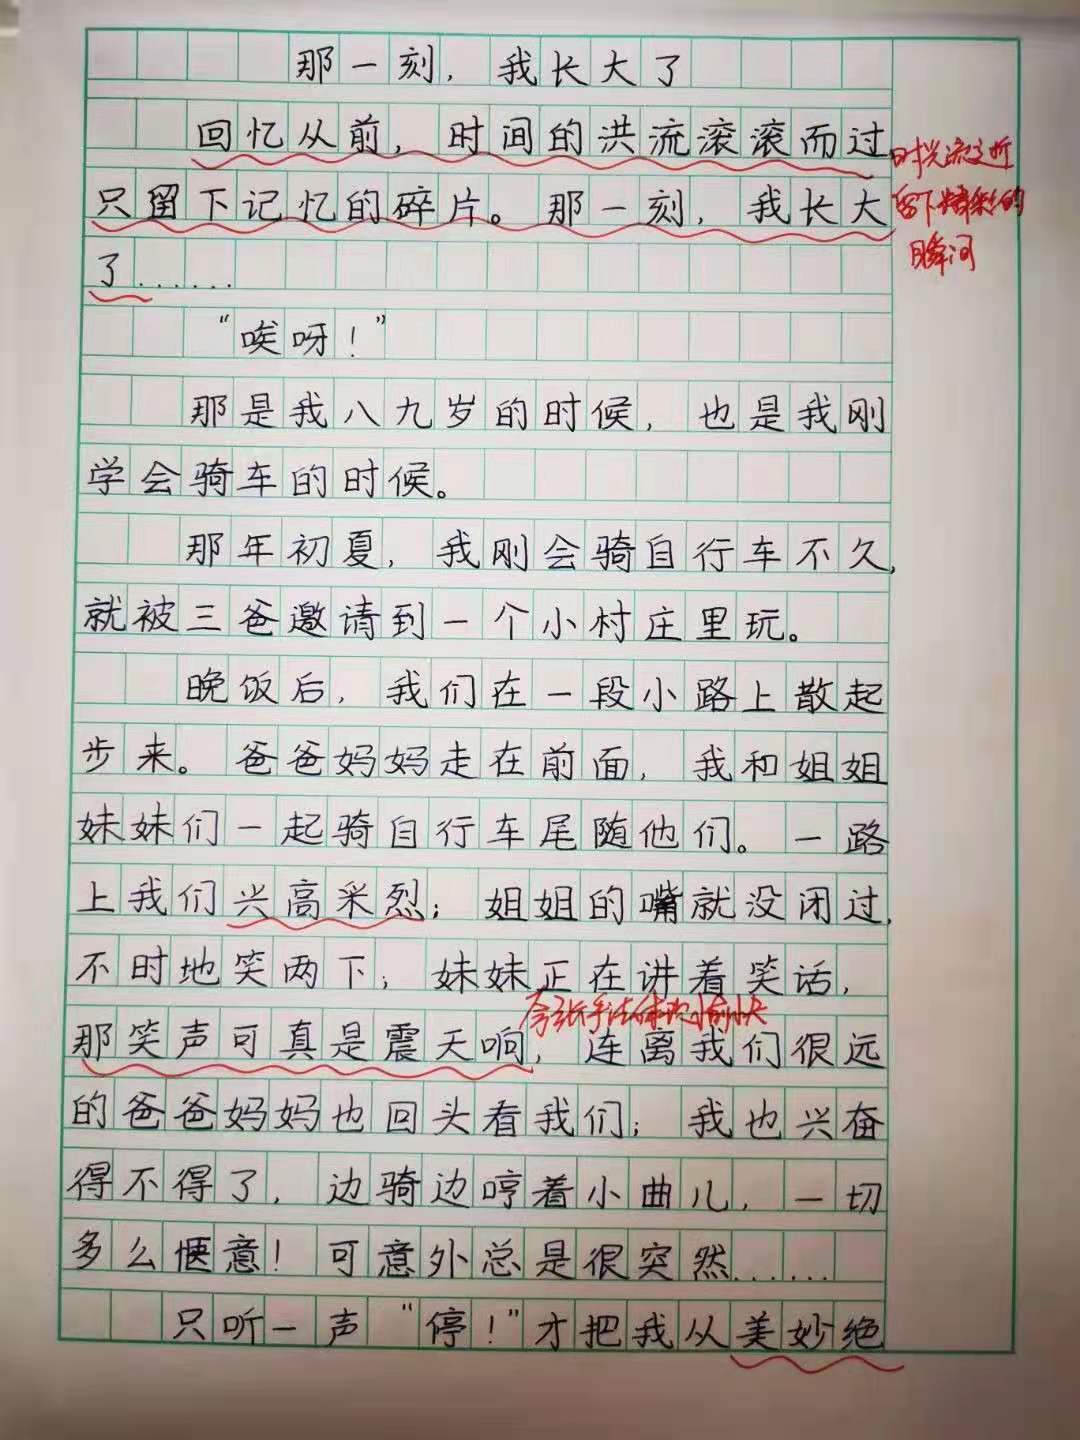 那一刻，我长大了
回忆从前，时间的洪流滚滚而过
只留下记忆的碎片。那一刻，我长大
了......
“唉呀！”
那是我八九岁的时候，也是我刚
学会骑车的时候。
那年初夏，我刚会骑自行车不久，
就被三爸邀请到一个小村庄里玩。
晚饭后，我们在一段小路上散起
步来。爸爸妈妈走在前面，我和姐姐
妹妹们一起骑自行车尾随他们。一路
上我们兴高采烈；姐姐的嘴就没闭过，
不时地笑两下；妹妹正在讲着笑话，
那笑声可真是震天响，连离我们很远
的爸爸妈妈也回头看我们；我也兴奋
得不得了，边骑边哼着小曲儿，一切
多么惬意！可意外总是很突然......
只听一声“停！”才把我从美妙绝
时光流逝
留下精彩的
瞬间
夸张手法体现愉快